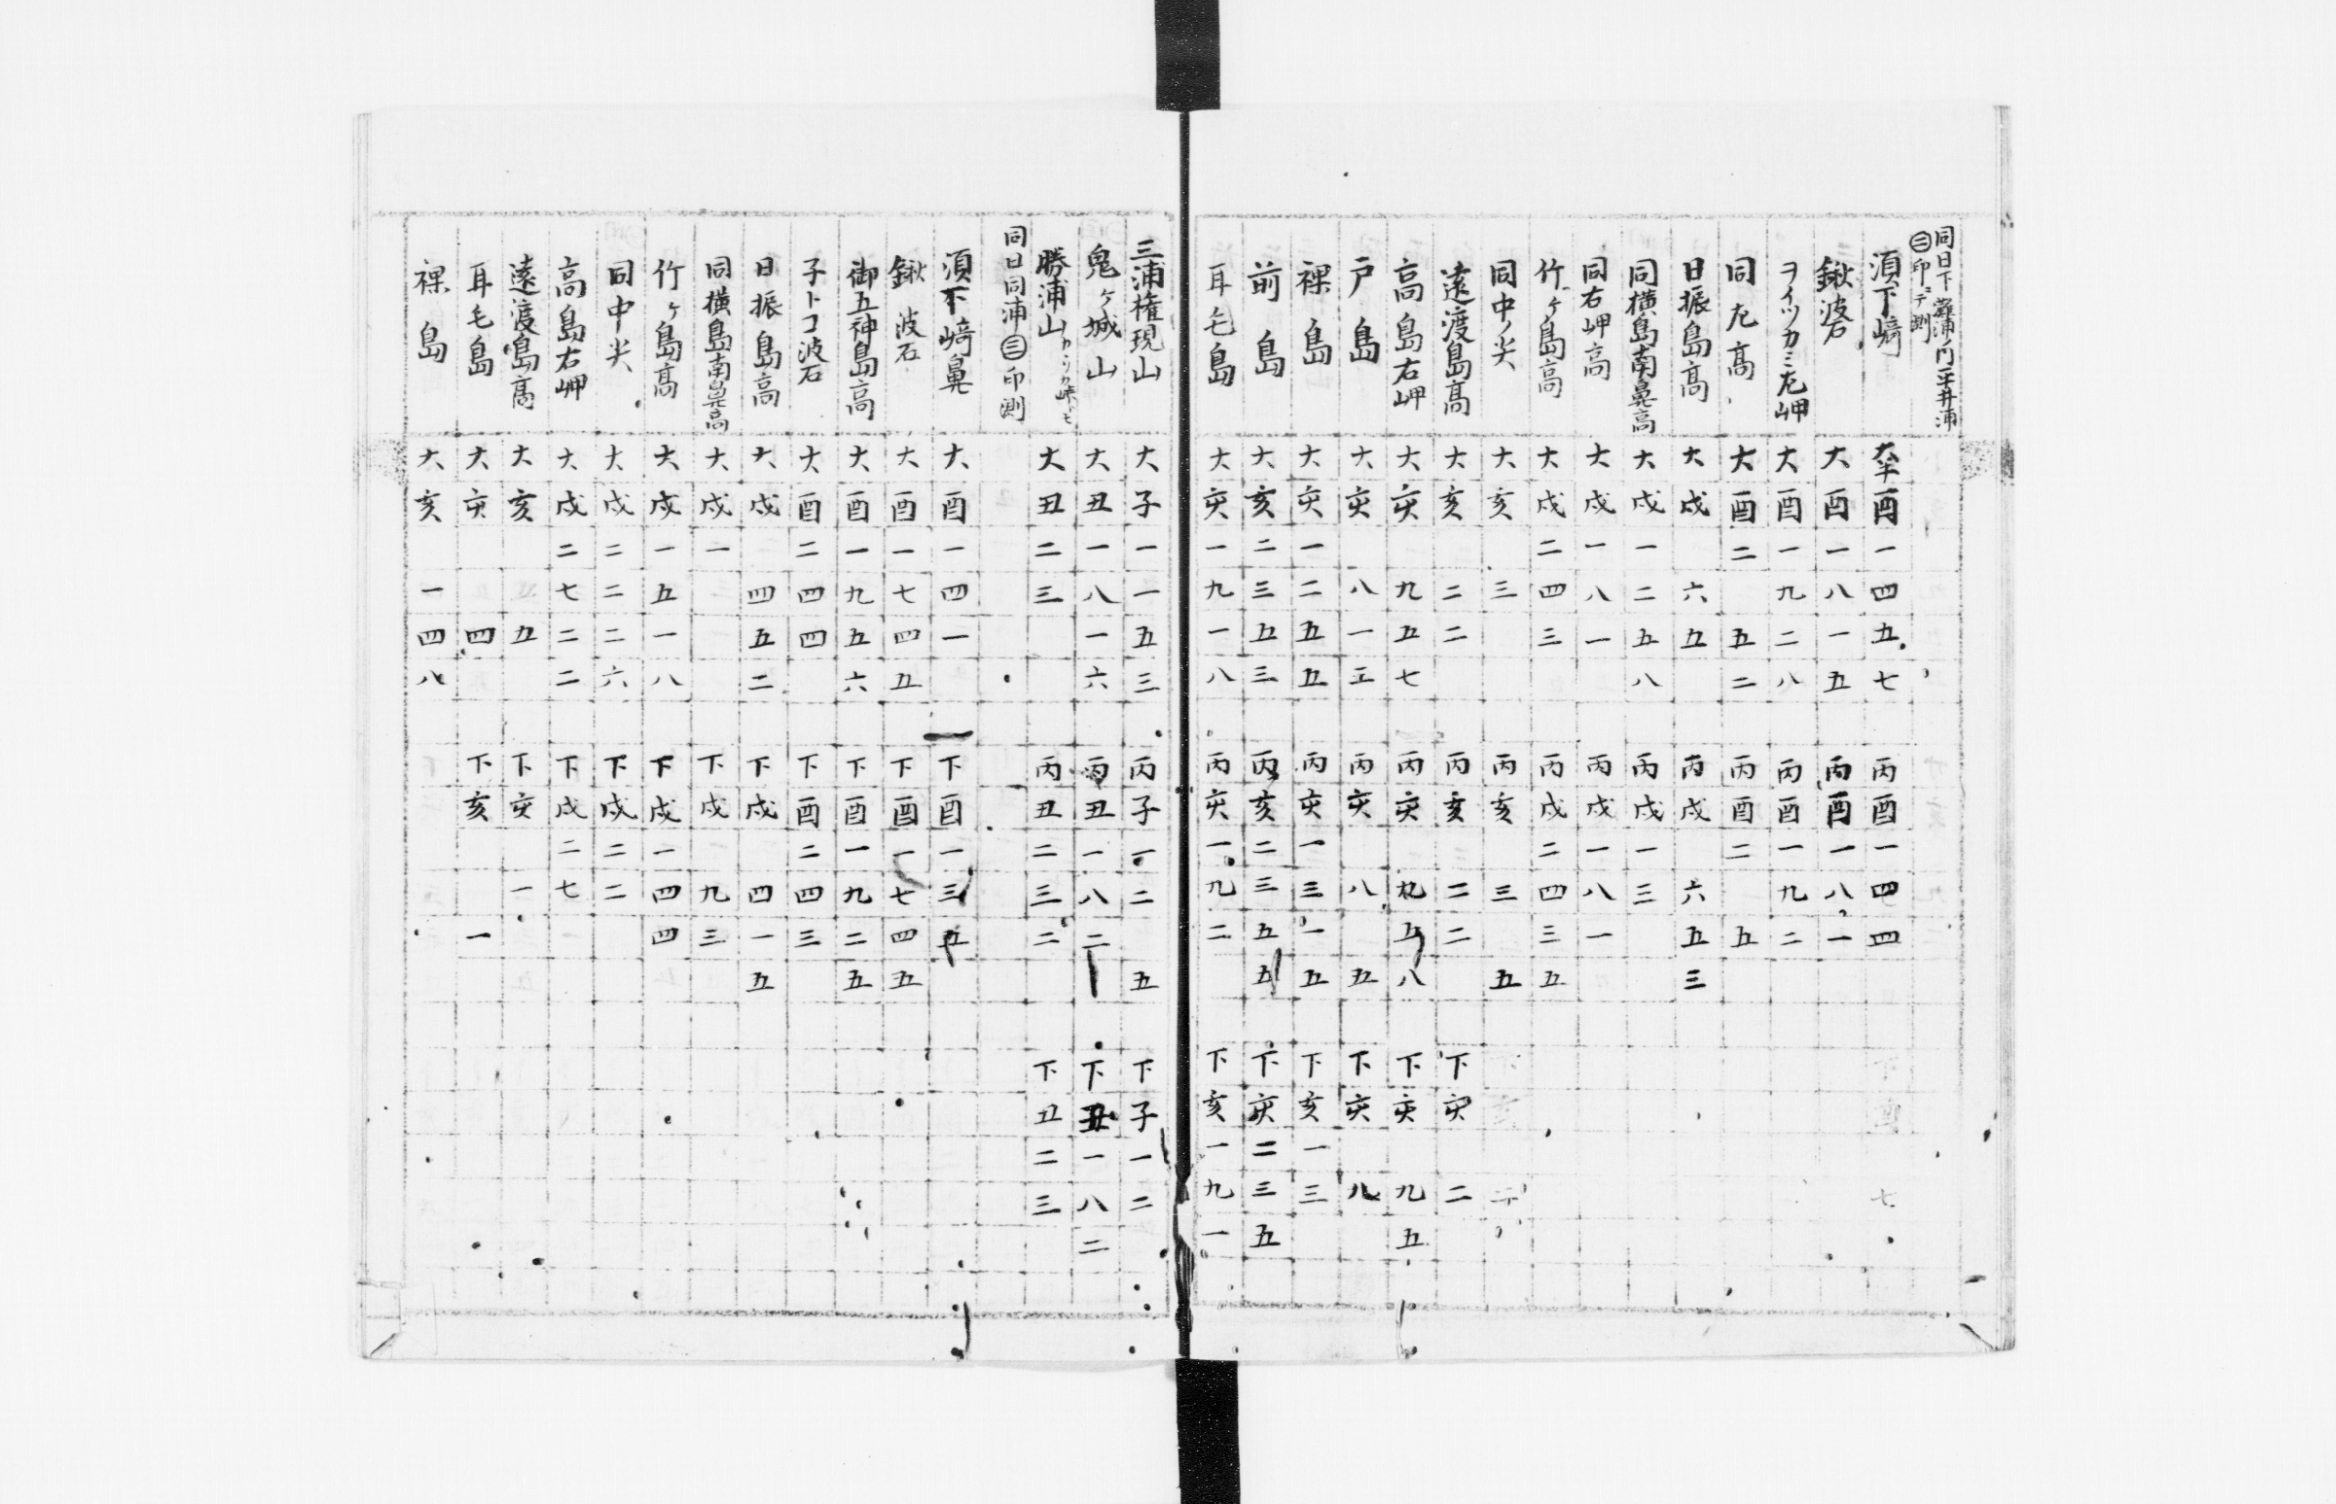 同日下灘浦ノ内平井浦
㊂印ニテ測
須下﨑 大半 酉一四九七 丙酉一四四四
鍬波石 大酉一八一五 丙酉一八一
ヲイツカミ左岬 大酉一九二八 丙酉一九二
同左高 大酉二 五二 丙酉二 五
日振島高 大戌 六五 丙戌 六五三
同横島南鼻高 大戌一二五八 丙戌一三
同右岬高 大戌一八一 丙戌一八一
竹ヶ島高 大戌二四三 丙戌二四三五
同中ノ尖 大亥 三 丙亥 三 五
遠渡島高 大亥 二二 丙亥 二二 下亥 二
高島右岬 大亥 九五七 丙亥 九五八 下亥 九五
戸島 大亥 八一 丙亥 八 五 下亥 八
裸島 大亥一二五五 丙亥一三一五 下亥一三
前島 大亥二三五三 丙亥二三五五 下亥二三五
耳毛島 大亥一九一八 丙亥一九二 下亥一九一
三浦権現山 大子一一五三 丙子一二 五 下子一二
鬼ヶ城山 大丑一八一六 丙丑一八二 下丑一八二
勝浦山 大丑二三 丙丑二三二 下丑二三
同日同浦㊂印測
須下﨑鼻 大酉一四一 下酉一三五
鍬波石 大酉一七四五 下酉一七四五
御五神島高 大酉一九五六 下酉一九二五
子トコ波石 大酉二四四 下酉二四三
日振島高 大戌 四五二 下戌 四一五
同横島南鼻高 大戌一 下戌 九三
竹ヶ島高 大戌一五一八 下戌一四四
同中尖 大戌二二二六 下戌二二
高島右岬 大戌二七二二 下戌二七
遠渡島高 大亥 五 下亥 一
耳毛島 大亥 四 下亥 一
裸島 大亥 一四八